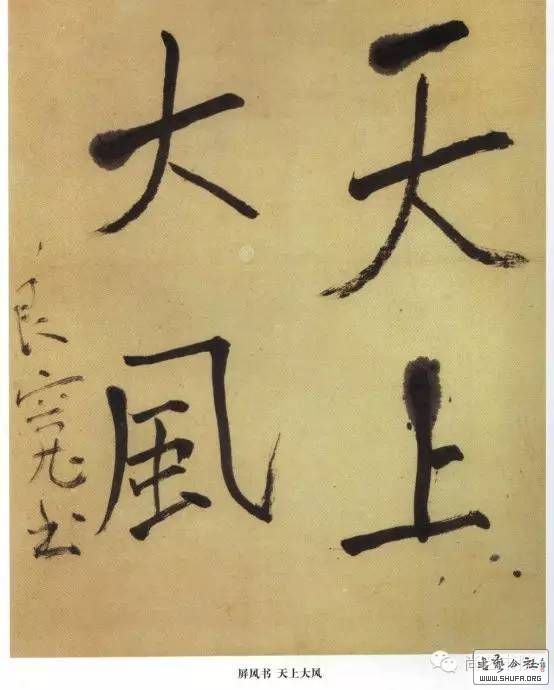 天上
大風
良寛书
屏风书 天上大风
书艺公社
WWW.SHUFA.ORG